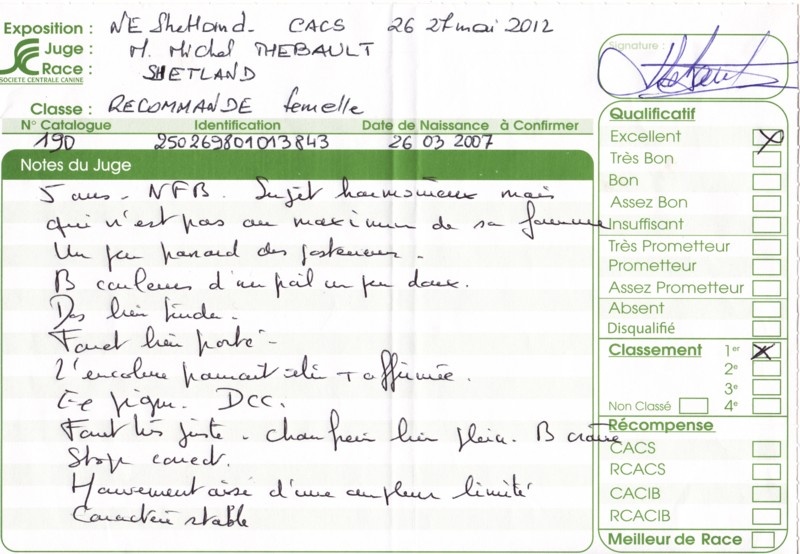 Exposition : NE Shetland - CACS 26 27 mai 2012
Juge : M. Michel THEBAULT
Race : SHETLAND
SOCIETE CENTRALE CANINE
Classe : RECOMMANDE femelle
N° Catalogue Identification Date de Naissance à Confirmer
190 250269801013843 26 03 2007
Notes du Juge
5 ans NFB. Sujet harmonieux mais
qui n'est pas au maximum de sa fourrure
Un peu panard des postérieurs.
B couleurs d'un poil un peu doux.
Dos bien tendu.
Fouet bien porté -
L'encolure pourrait être + affirmée.
DCC.
Stop correct.
Mouvement aisé d'une ampleur limité
Caractère stable
Signature :
Qualificatif
Excellent X
Très Bon
Bon
Assez Bon
Insuffisant
Très Prometteur
Prometteur
Assez Prometteur
Absent
Disqualifié
Classement 1er X
2e
3e
Non Classé 4e
Récompense
CACS
RCACS
CACIB
RCACIB
Meilleur de Race